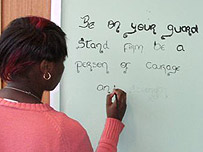 Be on your guard
Stand firm be a
person of courage